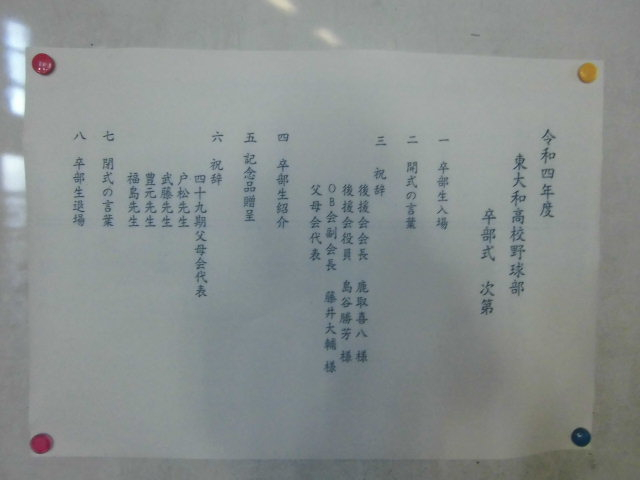 令和四年度
東大和高校野球部
卒部式 次第
一 卒部生入場
二 開式の言葉
三 祝辞
後援会会長 鹿取喜八 様
後援会役員 島谷勝芳 様
OB会副会長 藤井大輔 様
父母会代表
四 卒部生紹介
五 記念品贈呈
六 祝辞
四十九期父母会代表
戸松先生
武藤先生
豊元先生
福島先生
七 閉式の言葉
八 卒部生退場